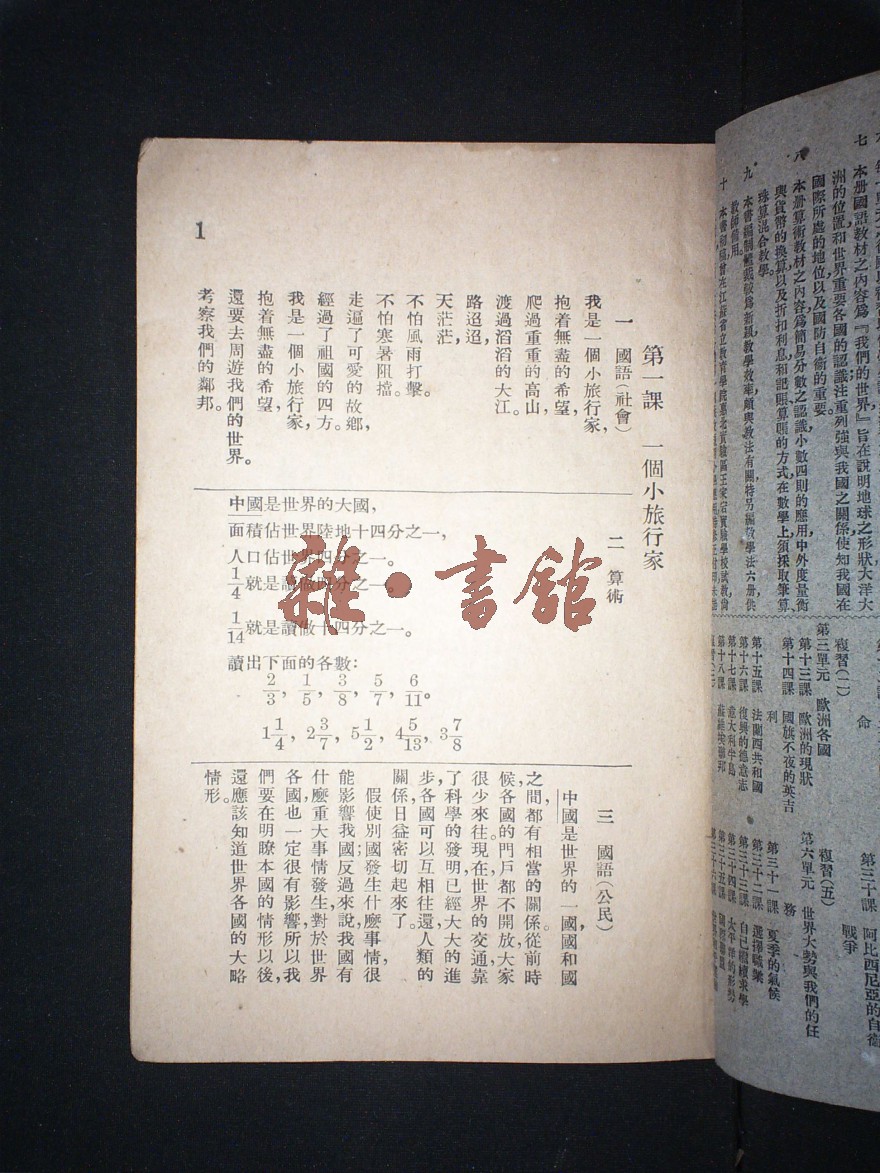 七 本册國語教材之內容爲『我們的世界』旨在說明地球之形狀大洋大
洲的位置和世界重要各國的認識注重列強與我國之關係使知我國在
國際所處的地位以及國防自衞的重要。
八 本册算術教材之內容爲簡易分數之認識小數四則的應用中外度量衡
與貨幣的換算以及折扣利息和記賬算賬的方式在數學上須採取筆算
珠算混合教學。
教師備用。
命
複習(一)
第三單元 歐洲各國
第十三課 歐洲的現狀
第十四課 國旗不夜的英吉
利
第十五課 法蘭西共和國
第十六課 復興的德意志
第十七課 意大利半島
第十八課
第三十課 阿比西尼亞的自衞
戰爭
複習(五)
第六單元 世界大勢與我們的任
務
第三十一課 夏季的氣候
第三十二課 選擇職業
第三十三課
第三十四課 太平洋的形勢
第三十五課
第一課 一個小旅行家
一 國語(社會)
我是一個小旅行家,
抱着無盡的希望,
爬過重重的高山,
渡過滔滔的大江。
路迢迢,
天茫茫,
不怕風雨打擊。
不怕寒暑阻擋。
走遍了可愛的故鄉,
經過了祖國的四方。
我是一個小旅行家,
抱着無盡的希望,
還要去周遊我們的世界。
考察我們的鄰邦。
二 算術
中國是世界的大國,
面積佔世界陸地十四分之一,
人口佔世界四分之一。
1/4 就是讀做四分之一
1/14 就是讀做十四分之一。
讀出下面的各數:
2/3, 1/5, 3/8, 5/7, 6/11。
1 1/4, 2 3/7, 5 1/2, 4 5/13, 3 7/8
三 國語(公民)
中國是世界的一國,國和國
之間都有相當的關係。從前時
候各國的門戶都不開放,大家
很少來往。現在世界的交通,靠
了科學的發明,已經大大的進
步,各國可以互相往還,人類的
關係,日益密切起來了。
假使別國發生什麼事情,很
能影響我國;反過來說,我國有
什麼重大事情發生,對於世界
各國,也一定很有影響。所以我
們要在明瞭本國的情形以後,
還應該知道世界各國的大略
情形。
1
雜·書館